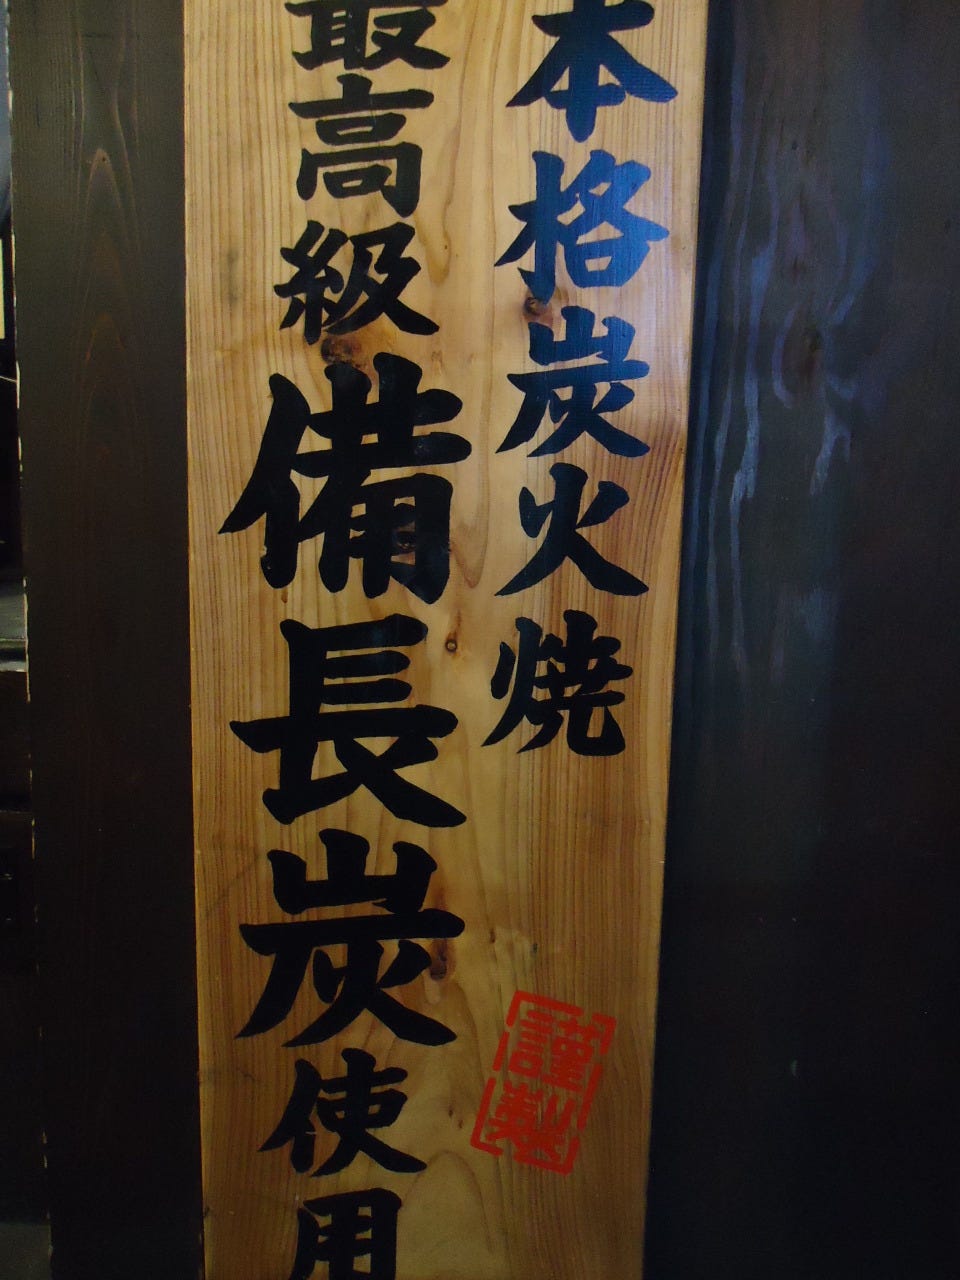 本格炭火焼
最高級備長炭使用
謹製